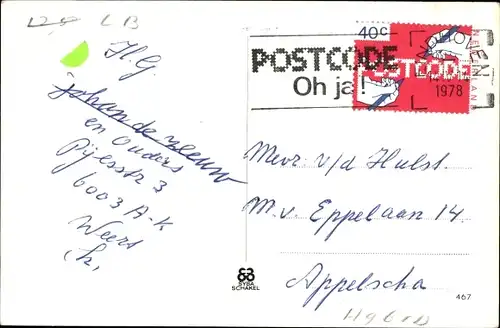 L B
H G
Johan de Leeuw
en Ouders
Pijlsstr 3
6003 A-K
Weert
(L.
POSTCODE
Oh ja!
40c
POSTCODE
1978
Mevr v/d Hulst.
M.v. Eppelaan 14.
Appelscha
SYBA
SCHAKEL
467